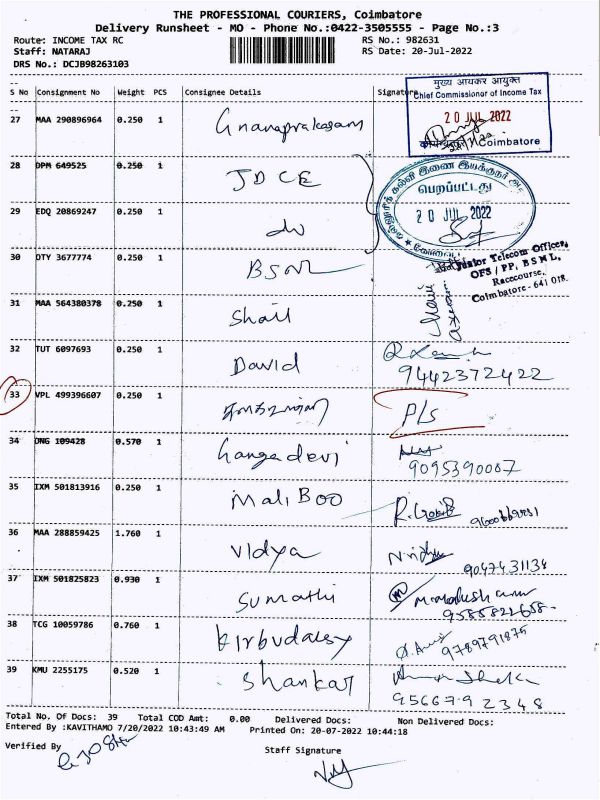 THE PROFESSIONAL COURIERS, Coimbatore
Delivery Runsheet - MO - Phone No.:0422-3505555 - Page No.:3
Route: INCOME TAX RC
RS No.: 982631
Staff: NATARAJ
RS Date: 20-Jul-2022
DRS No.: DCJB98263103
S No Consignment No Weight PCS Consignee Details Signature
मुख्य आयकर आयुक्त
Chief Commissioner of Income Tax
20 JUL 2022
Coimbatore
27 MAA 290896964 0.250 1 Gnanaprakasam
28 DPM 649525 0.250 1 JDCE
பெறப்பட்டது
20 JUL 2022
கோவை
29 EDQ 20869247 0.250 1 do
30 OTY 3677774 0.250 1 BSNL
Junior Telecom Officer,
OFS / PP, BSNL,
Racecourse,
Coimbatore - 641 018.
31 MAA 564380378 0.250 1 Shall
32 TUT 6097693 0.250 1 David
9442372422
33 VPL 499396607 0.250 1 P/S
34 ONG 109428 0.570 1 Gangadevi
9095390007
35 IXM 501813916 0.250 1 Maliboo
36 MAA 288859425 1.760 1 Vidya
9047431134
37 IXM 501825823 0.930 1 Sumathi
38 TCG 10059786 0.760 1
9789791875
39 KMU 2255175 0.520 1 Shankar
9566792348
Total No. Of Docs: 39 Total COD Amt: 0.00 Delivered Docs: Non Delivered Docs:
Entered By :KAVITHAMO 7/20/2022 10:43:49 AM Printed On: 20-07-2022 10:44:18
Verified By
Staff Signature